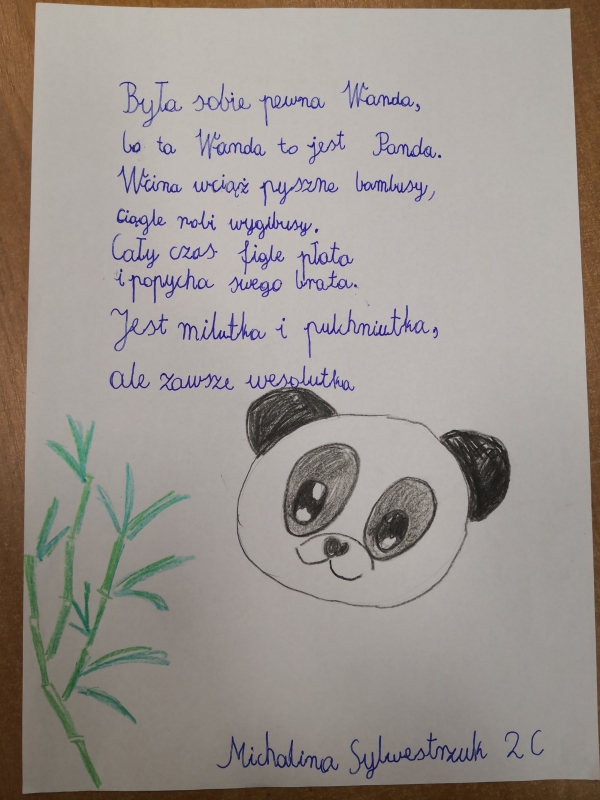 Była sobie pewna Wanda,
bo ta Wanda to jest Panda.
Wcina wciąż pyszne bambusy,
ciągle robi wygibusy.
Cały czas figle płata
i popycha swego brata.
Jest milutka i pulchniutka,
ale zawsze wesolutka
Michalina Sylwestrzuk 2 C